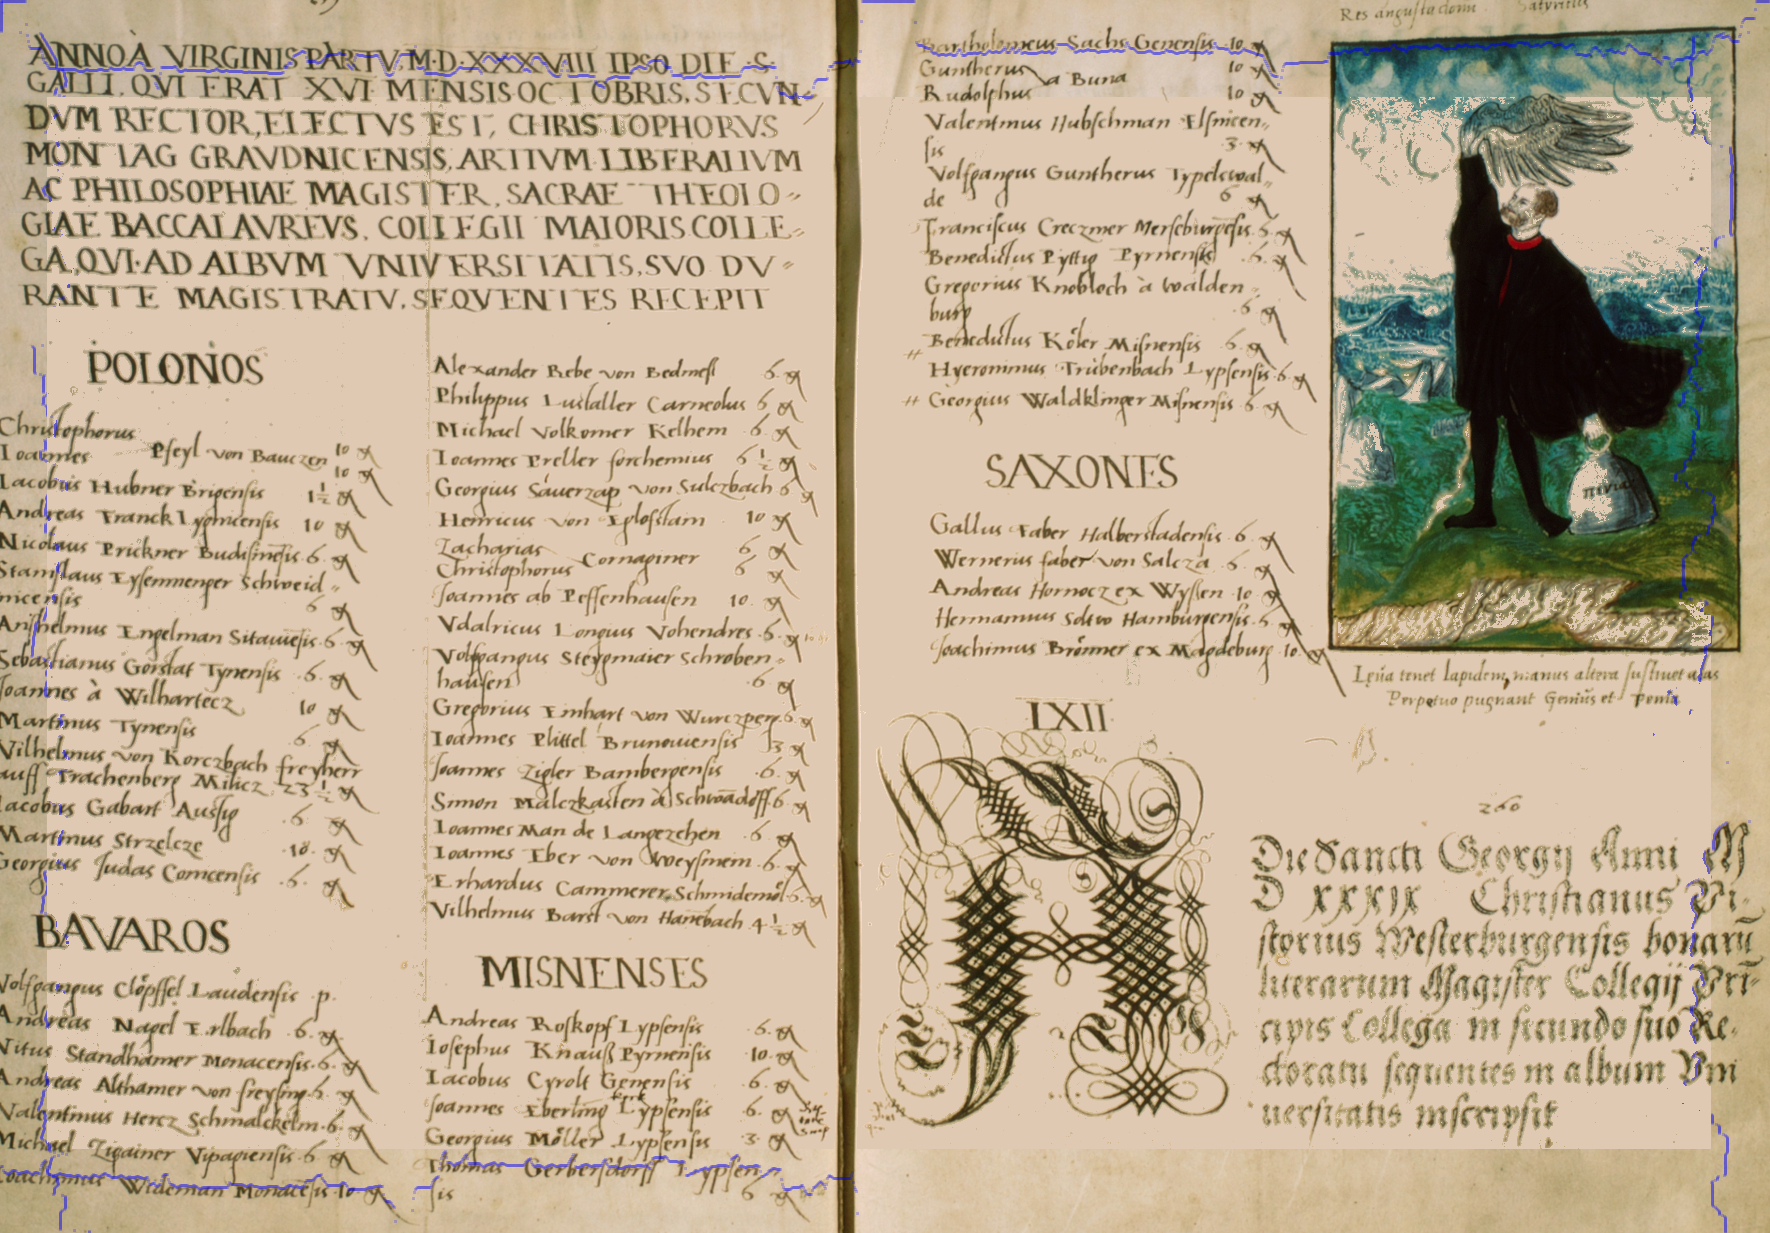 ANNO A VIRGINIS PARTV M·D·XXXVIII IPSO DIE ·S·
GALLI, QVI ERAT XVI MENSIS OCTOBRIS, SECVN-
DVM RECTOR, ELECTVS EST, CHRISTOPHORVS
MONTAG GRAVDNICENSIS, ARTIVM LIBERALIVM
AC PHILOSOPHIAE MAGISTER, SACRAE THEOLO=
GIAE BACCALAVREVS, COLLEGII MAIORIS COLLE=
GA, QVI AD ALBVM VNIVERSITATIS, SVO DV=
RANTE MAGISTRATV, SEQVENTES RECEPIT
POLONOS
Christophorus
Ioannes Pfeyl von Bauczen 10 g
10 g
Iacobus Hubner Brigensis 1½ g
Andreas Franck Lygnicensis 10 g
Nicolaus Prickner Budisinesis 6 g
Stanislaus Eysenmenger Schweid=
nicensis 6 g
Anshelmus Engelman Sitauiesis 6 g
Sebastianus Gorstat Tynensis 6 g
Ioannes à Wilhartecz 10 g
Martinus Tynensis 6 g
Vilhelmus von Korczbach freyherr
auff Trachenberg Milicz 23½ g
Iacobus Gabart Aussig 6 g
Martinus Strzelcze 10 g
Georgius Judas Comcensis 6 g
BAVAROS
Volfgangus Clöpffel Laudensis p.
Andreas Nagel Erlbach 6 g
Vitus Standhamer Monacensis 6 g
Andreas Althamer von freysing 6 g
Valentinus Hercz Schmalckelm 6 g
Michael Zigainer Vipagiensis 6 g
Ioachimus Wideman Monacesis 10 g
Alexander Rebe von Bedmesl 6 g
Philippus Lustaller Carneolus 6 g
Michael Volkomer Kelhem 6 g
Ioannes Preller forchemius 6½ g
Georgius Sauerzap von Sulczbach 6 g
Henricus von Eglofstam 10 g
Zacharias 6 g
Christophorus Cornaginer 6 g
Joannes ab Peffenhausen 10 g
Vdalricus Longus Vohendres 6 g
Volfgangus Steygmaier Schroben=
hausen 6 g
Gregorius Emhart von Wurczpeng 6 g
Ioannes Plittel Brunouiensis 3 g
Joannes Zigler Bambergensis 6 g
Simon Malczkasten à Schwadorff 6 g
Ioannes Man de Langezehen 6 g
Ioannes Eber von Weysmein 6 g
Erhardus Cammerer Schmidemöl 6 g
Vilhelmus Barst von Hanebach 4½ g
MISNENSES
Andreas Roskopf Lypsensis 6 g
Iosephus Knauß Pyrnensis 10 g
Iacobus Cyrolt Genensis 6 g
Joannes Eberling Lypsensis 6 g
Georgius Möller Lypsensis 3 g
Thomas Gerbersdorff Lypsen
sis 6 g
Bartholomeus Sachs Genensis 10 g
Guntherus 10 g
Rudolphus a Buna 10 g
Valentinus Hubschman Elsnicen=
sis 3 g
Volfgangus Guntherus Typelswal=
de 6 g
Franciscus Creczmer Merseburgesis 6 g
Benedictus Pyttig Pyrnensis 6 g
Gregorius Knobloch à Walden
burg 6 g
Benedictus Köler Misnensis 6 g
Hyeronimus Trübenbach Lypsensis 6 g
Georgius Waldklinger Misnensis 6 g
SAXONES
Gallus Faber Halberstadensis 6 g
Wernerius faber von Salcza 6 g
Andreas Hornocz ex Wyssen 10 g
Hermannus Hamburgensis 6 g
Joachimus Brönner ex Magdeburg 10 g
LXII
Res angusta domi
penia
Leua tenet lapidem, manus altera sustinet alas
Perpetuo pugnant Genius et Penia
260
Die Sancti Georgij Anni M
D XXXIX Christianus Pi-
storius Westerburgensis bonarū
literarum Magister Collegij Pri-
cipis Collega in secundo suo Re-
ctoratu sequentes in album Vni
uersitatis inscripsit